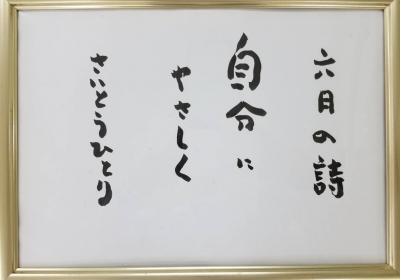 六月の詩
自分に
やさしく
さいとうひとり